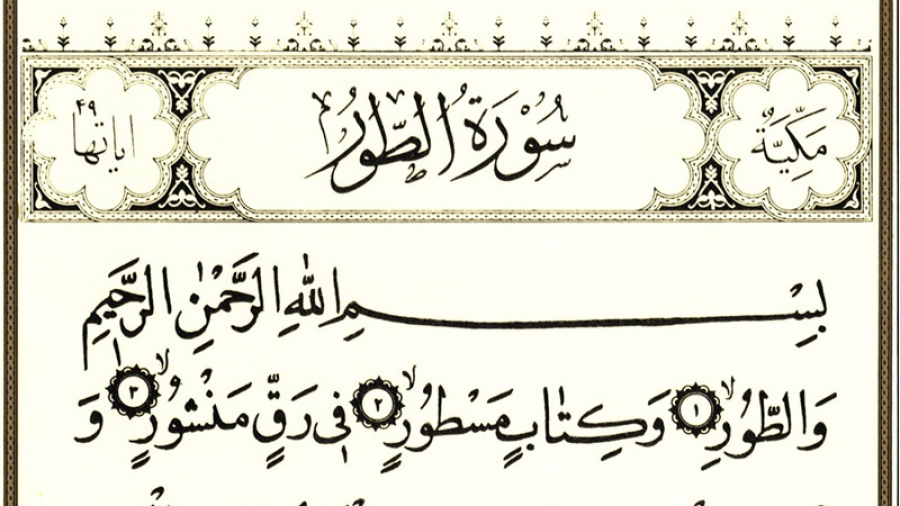 مَكِّيَّةٌ
سُوْرَةُ الطُّوْرِ
اياتها ٤٩
بِسْمِ اللّٰهِ الرَّحْمٰنِ الرَّحِيْمِ
وَالطُّوْرِۙ ١ وَكِتٰابٍ مَسْطُوْرٍۙ ٢ فٖى رَقٍّ مَنْشُوْرٍۙ ٣ وَ